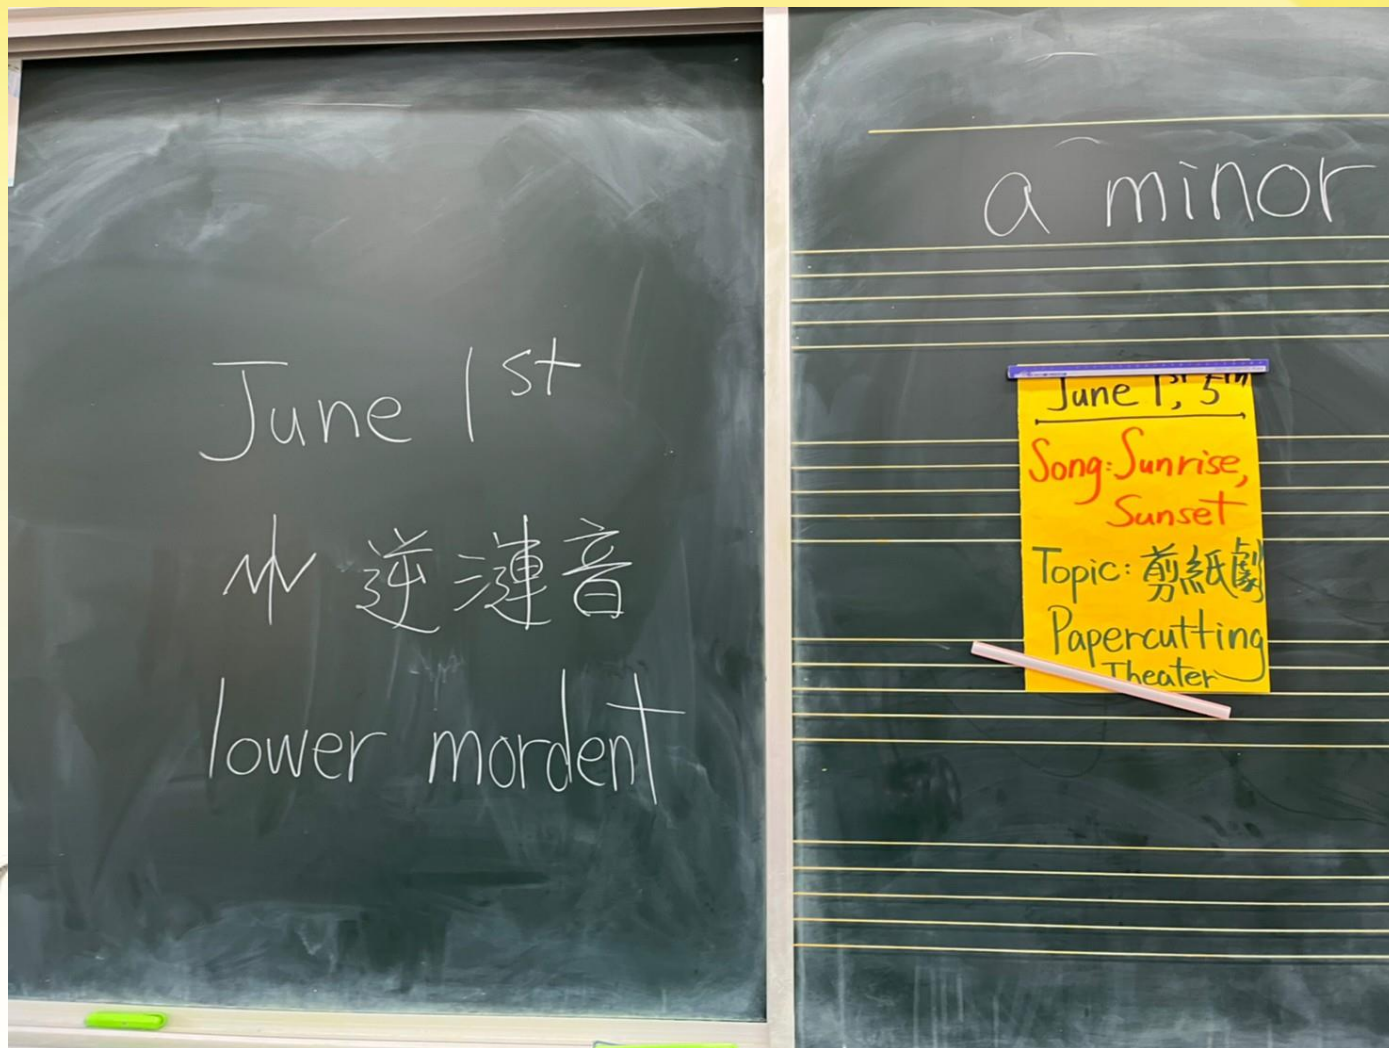 June 1st
逆漣音
lower mordent
a minor
June 1st, 5th
Song: Sunrise,
Sunset
Topic: 剪紙劇
Papercutting
Theater